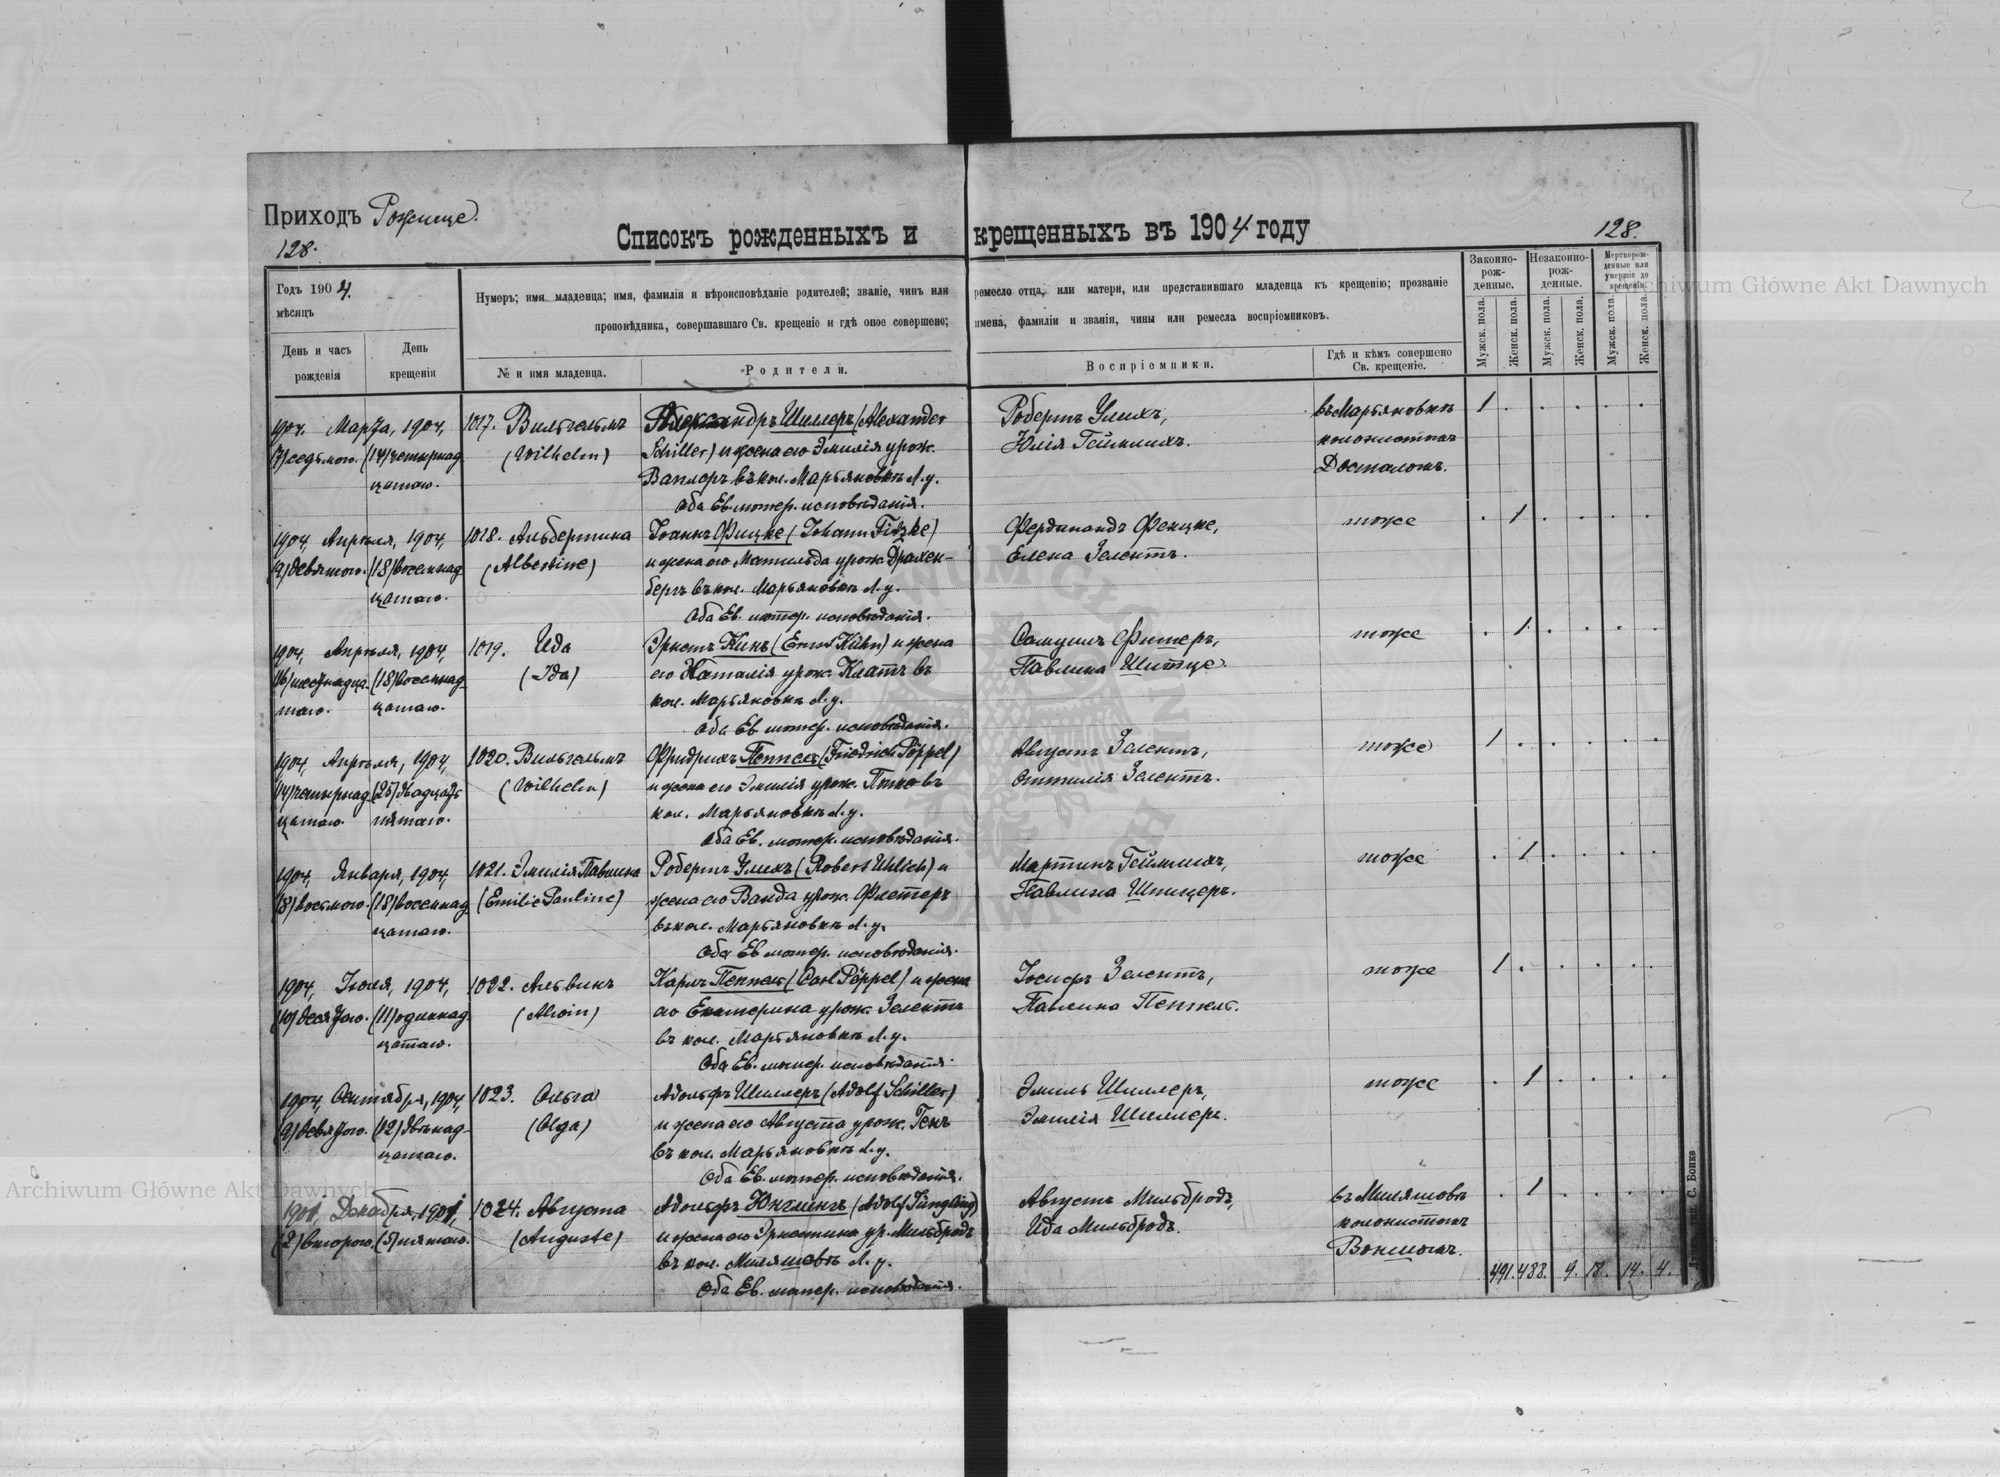 Приходъ Рожище.
128.
Списокъ рожденныхъ и крещенныхъ въ 1904 году
128.
Годъ 1904.
мѣсяцъ
День и часъ рожденія
День крещенія
Нумеръ; имя младенца; имя, фамилія и вѣроисповѣданіе родителей; званіе, чинъ или ремесло отца, или матери, или представившаго младенца къ крещенію; прозваніе
проповѣдника, совершавшаго Св. крещеніе и гдѣ оное совершено; имена, фамиліи и званія, чины или ремесла воспріемниковъ.
№ и имя младенца.
Родители.
Воспріемники.
Гдѣ и кѣмъ совершено Св. крещеніе.
Законно-рожденные.
Незаконно-рожденные.
Мертворожденные или умершіе до крещенія.
Мужск. пола.
Женск. пола.
Мужск. пола.
Женск. пола.
Мужск. пола.
Женск. пола.
1904. Марта, 1904, 1017. Вильгельмъ Александръ Шиллеръ (Alexander Робертъ Улихъ, въ Марьяновкѣ 1
(7) седьмого. (14) четырнад (Wilhelm) Schiller) и жена его Эмилія урож. Юлія Геймлихъ. колонистомъ
цатаго. въ кол. Марьяновкѣ Л. у. Досталомъ.
Оба Ев. лютер. исповѣданія.
1904, Апрѣля, 1904, 1018. Альбертина Іоаннъ Фицке (Johann Fitzke) Фердинандъ Фенцке, тоже 1
(9) девятого. (18) восемнад (Albertine) и жена его Матильда урож. Драхен- Елена Зелентъ.
цатаго. бергъ въ кол. Марьяновкѣ Л. у.
Оба Ев. лютер. исповѣданія.
1904, Апрѣля, 1904, 1019. Ида Эрнстъ Кинъ (Ernst Kühn) и жена Самуилъ Фитеръ, тоже 1
(16) шестнадца- (18) восемнад- (Ida) его Наталія урож. Клаттъ въ Павлина
таго. цатаго. кол. Марьяновкѣ Л. у.
Оба Ев. лютер. исповѣданія.
1904, Апрѣля, 1904, 1020. Вильгельмъ Фридрихъ Пеппель (Friedrich Pöppel) Августъ Зелентъ, тоже 1
(14) четырнад (25) двадцать (Wilhelm) и жена его Эмилія урож. въ Оттилія Зелентъ.
цатаго. пятаго. кол. Марьяновкѣ Л. у.
Оба Ев. лютер. исповѣданія.
1904, Января, 1904, 1021. Эмилія Павлина Робертъ Улихъ (Robert Uhlich) и Мартинъ Геймлихъ, тоже 1
(8) восьмого. (18) восемнад (Emilie Pauline) жена его Ванда урож. Фистеръ Павлина Шпицеръ.
цатаго. въ кол. Марьяновкѣ Л. у.
Оба Ев. лютер. исповѣданія.
1904, Іюля, 1904, 1022. Альвинъ Карлъ Пеппель (Carl Pöppel) и жена Іосифъ Зелентъ, тоже 1
(10) десятого. (11) одиннад (Alwin) его Екатерина урож. Зелентъ Павлина Пеппель.
цатаго. въ кол. Марьяновкѣ Л. у.
Оба Ев. лютер. исповѣданія.
1904, Сентября, 1904, 1023. Ольга Адольфъ Шиллеръ (Adolf Schiller) Эмиль Шиллеръ, тоже 1
(9) девятого. (12) двѣнад- (Olga) и жена его Августа урож. Генъ Эмилія Шиллеръ.
цатаго. въ кол. Марьяновкѣ Л. у.
Оба Ев. лютер. исповѣданія.
1901, Декабря, 1901, 1024. Августа Адольфъ Юнглингъ (Adolf Jüngling) Августъ Мильбродъ, въ Миляшовѣ 1
(2) второго. (5) пятаго. (Auguste) и жена его Эрнстина ур. Мильбродъ Ида Мильбродъ. колонистомъ
въ кол. Миляшовѣ Л. у.
Оба Ев. лютер. исповѣданія.
491. 488. 9. 18. 14. 4.
С. Бонкъ
Archiwum Główne Akt Dawnych
Archiwum Główne Akt Dawnych